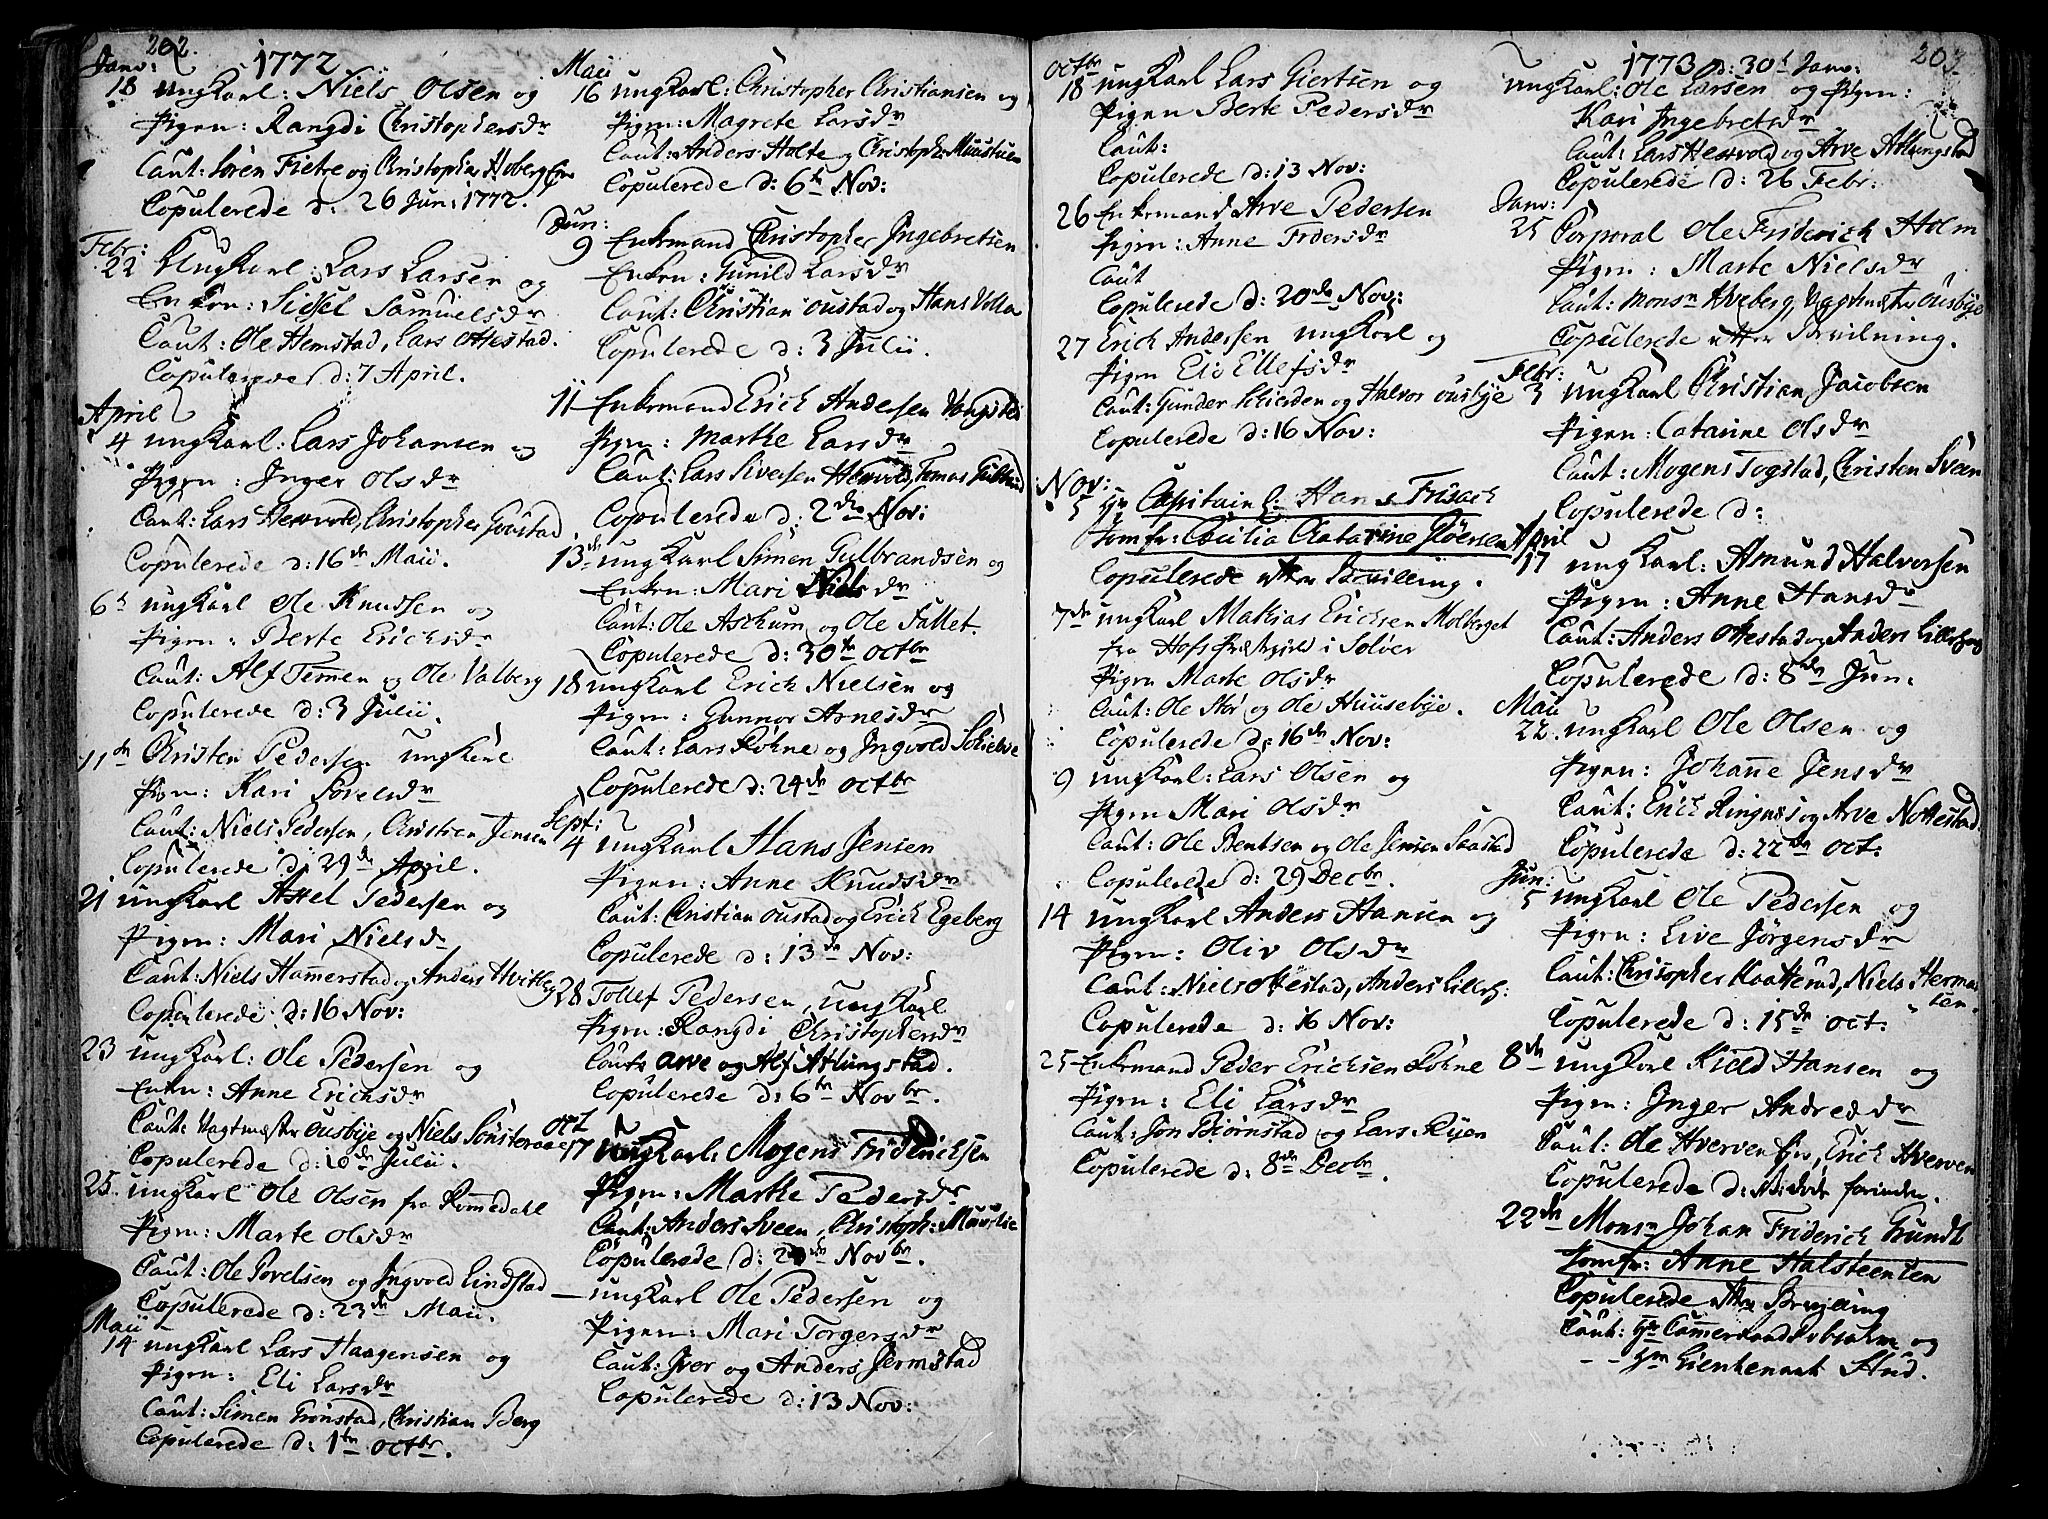 202.
1772
Janv:
18 ungKarl: Niels Olsen og
Pigen: Rangdi Christophersdr
Caut: Sören Fietre og Christopher Hoberg
Copulerede d: 26 Jun: 1772.
Febr:
22 UngKarl: Lars Larsen og
Enken: Sidsel Samuelsdr
Caut: Ole Hemstad, Lars Ottestad.
Copulerede d: 7 April.
April
4 ungKarl: Lars Johansen og
Pigen: Inger Olsdr
Caut: Lars Hervold, Christopher Goustad
Copulerede d: 16de Maii.
6t ungKarl Ole Knudsen og
Pigen: Berte Ericksdr
Caut: Alf Temen og Ole Valberg
Copulerede d: 3 Julii.
11de Christen Pedersen ungKarl
Pigen: Kari Povelsdr
Caut: Niels Pedersen, Christen Jensen
Copulerede d: 29de April.
21 ungKarl Axel Pedersen og
Pigen: Mari Nielsdr
Caut: Niels Hamerstad og Anders Hvitberg
Copulerede d: 16 Nov:
23 ungKarl: Ole Pedersen og
Enken: Anne Ericksdr
Caut: Vagtmester Ousbye og Niels Sönsteraae
Copulerede d: 10de Julii.
25. ungKarl Ole Olsen fra Romedahl
Pigen: Marte Olsdr
Caut: Ole Povelsen og Ingvold Lindstad
Copulerede d: 23de Maii.
Maii
14 ungKarl Lars Haagensen og
Pigen: Eli Larsdr
Caut: Simen Grönstad, Christian Berg
Copulerede d: 1te octbr.
Maii
16 ungKarl: Christopher Christiansen og
Pigen: Magrete Larsdr
Caut: Anders Holte og Christoph: Muustuen
Copulerede d: 6te Nov:
Jun:
9 Enkemand Christopher Ingebretsen
Enken: Gunild Larsdr
Caut: Christian Oustad og Hans Volla
Copulerede d: 3 Julii.
11 Enkemand Erick Andersen
Pigen: Marthe Larsdr
Caut: Lars Siversen Hervold, Tomas
Copulerede d: 2den Nov:
13de ungKarl Simen Gulbrandsen og
Enken: Mari Nielsdr
Caut: Ole Askum og Ole Fallet.
Copulerede d: 30te octbr
18 ungKarl Erick Nielsen og
Pigen: Gunnor Arnesdr
Caut: Lars Köhne og Ingvold Schielve
Copulerede d: 24de octbr
Sept:
4 ungKarl Hans Jensen
Pigen: Anne Knudsdr
Caut: Christian Oustad og Erick Egeberg
Copulerede d: 13de Nov:
28 Tollef Pedersen, ungKarl
Pigen: Rangdi Christophersdr
Caut: Arve og Alf Atlungstad.
Copulerede d: 6te Novbr.
oct
17 ungKarl: Mogens Friderichsen
Pigen: Marthe Pedersdr
Caut: Anders Sveen, Christoph: Muustue
Copulerede d: 20de Novbr.
ungKarl Ole Pedersen og
Pigen: Mari Torgersdr
Caut: Iver og Anders Jermstad
Copulerede d: 13 Nov:
octbr
18 ungKarl Lars Giertsen og
Pigen Berte Pedersdr
Caut:
Copulerede d: 13 Nov:
26 Enkemand Arve Pedersen
Pigen: Anne Pedersdr
Caut
Copulerede d: 20de Nov:
27 Erick Andersen ungKarl og
Pigen Eli Ellefsdr
Caut: Gunder Schierden og Halvor Ousbye
Copulerede d: 16 Nov:
Nov:
5 Hr Capitain Hans Frisach
Jomfr: Cecilia Catarine Flöersen
Copulerede efter Bevilling.
7de ungKarl Mathias Ericksen Molberget
fra Hofs Præstegield i Solöer
Pigen Marte Olsdr
Caut: Ole Hör og Ole Huusebye.
Copulerede d: 16de Nov:
9 ungKarl: Lars Olsen og
Pigen Mari Olsdr
Caut: Ole Bentsen og Ole Jensen Saastad
Copulerede d: 29 Decbr.
14 ungKarl Anders Hansen og
Pigen: Oliv Olsdr
Caut: Niels Ottestad, Anders Lilleh:
Copulerede d: 16 Nov:
25 Enkemand Peder Ericksen Köhne
Pigen: Eli Larsdr
Caut: Jon Biörnstad og Lars Ryen
Copulerede d: 8de Decbr.
203.
1773 d: 30t Janv:
ungKarl: Ole Larsen og Pigen:
Kari Ingebretsdr
Caut: Lars Hervold og Arve Atlungstad
Copulerede d: 26 Febr:
Janv:
25 Corporal Ole Friderich Holm
Pigen: Marte Nielsdr
Caut: Monsr Hveberg, Vagtmester Ousbye
Copulerede efter Bevilning.
Febr:
3 ungKarl Christian Jacobsen
Pigen: Catarine Olsdr
Caut: Mogens Togstad, Christen Sveen
Copulerede d:
April
17 ungKarl: Amund Halversen
Pigen: Anne Hansdr
Caut: Anders Ottestad og Anders Lillehoug
Copulerede d: 8de Jun.
Maii
22. ungKarl Ole Olsen og
Pigen: Johanne Jensdr
Caut: Erick Ringnes og Arve Nottestad
Copulerede d: 22de Oct:
Jun:
5 ungKarl Ole Pedersen og
Pigen: Live Jörgensdr
Caut: Christopher Kaatterud, Niels Herman
sen
Copulerede d: 15de oct:
8de ungKarl Kield Hansen og
Pigen: Inger Andredr
Caut: Ole Hverven, Erick Hverven
Copulerede d:
22de Monsr Johan Friderich Grundt
Jomfr: Anne Halsteensen
Copulerede efter Bevilling
Caut: Hr Cammerraad og
- - Hr Lieutenant Stud.